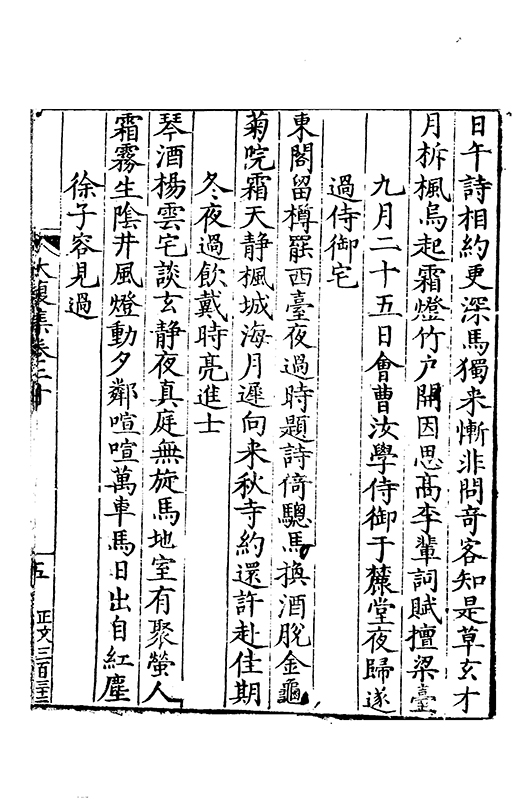 日午詩相約更深馬獨来慚非問竒客知是草玄才
月柝楓烏起霜燈竹户開因思髙李輩詞賦擅梁臺
九月二十五日會曹汝學侍御于麓堂夜歸遂
過侍御宅
東閣留樽罷西臺夜過時題詩倚驄馬換酒脫金龜
菊院霜天静楓城海月遲向来秋寺約還許赴佳期
冬夜過飲戴時亮進士
琴酒楊雲宅談玄静夜真庭無旋馬地室有聚螢人
霜霧生陰井風燈動夕鄰喧喧萬車馬日出自紅塵
徐子容見過
大復集卷二十
五
正文三百三十三